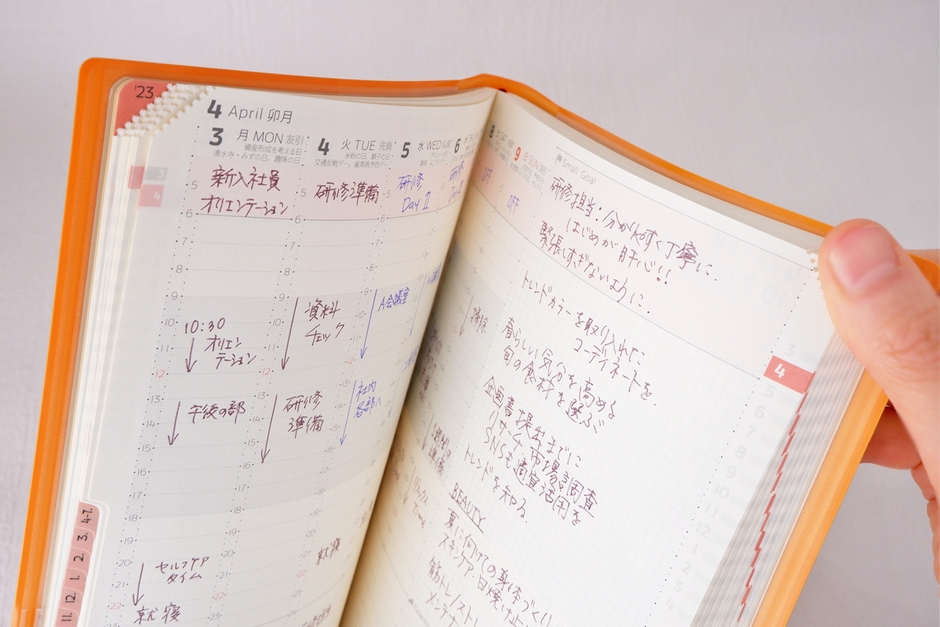 '23
4 April 卯月
3 月 MON 友引
資産形成を考える日・
清水寺・みずの日、趣味の日
4 火 TUE 先負
5 水 WED
6
新入社員
オリエンテーション
研修準備
研修
Day II
5
6
7
8
9
10
10:30
オリエン
テーション
資料
チェック
A会議室
11
12
13
午後の部
研修
準備
社内
各部へ
14
15
16
17
18
19
20
21
22
セルフケア
タイム
就寝
就寝
8
9
OFF
OFF
Small Goal
研修担当：分かりやすく丁寧に
はじめが肝心!!
緊張しすぎないように。
トレンドカラーを取り入れた
コーディネートを。
春らしい気分を高める
旬の食材を選ぶ
企画書提出までに
リサーチ、市場調査
SNSも適宜活用を
トレンドを知る。
BEAUTY
夏に向けての身体づくり
スキンケア・日焼け止
筋トレ/スト
メーテナ
4
5
6
7
8
9
10
11
12
1
2
3
4
4-7.
3.
2.
1.
12.
11.